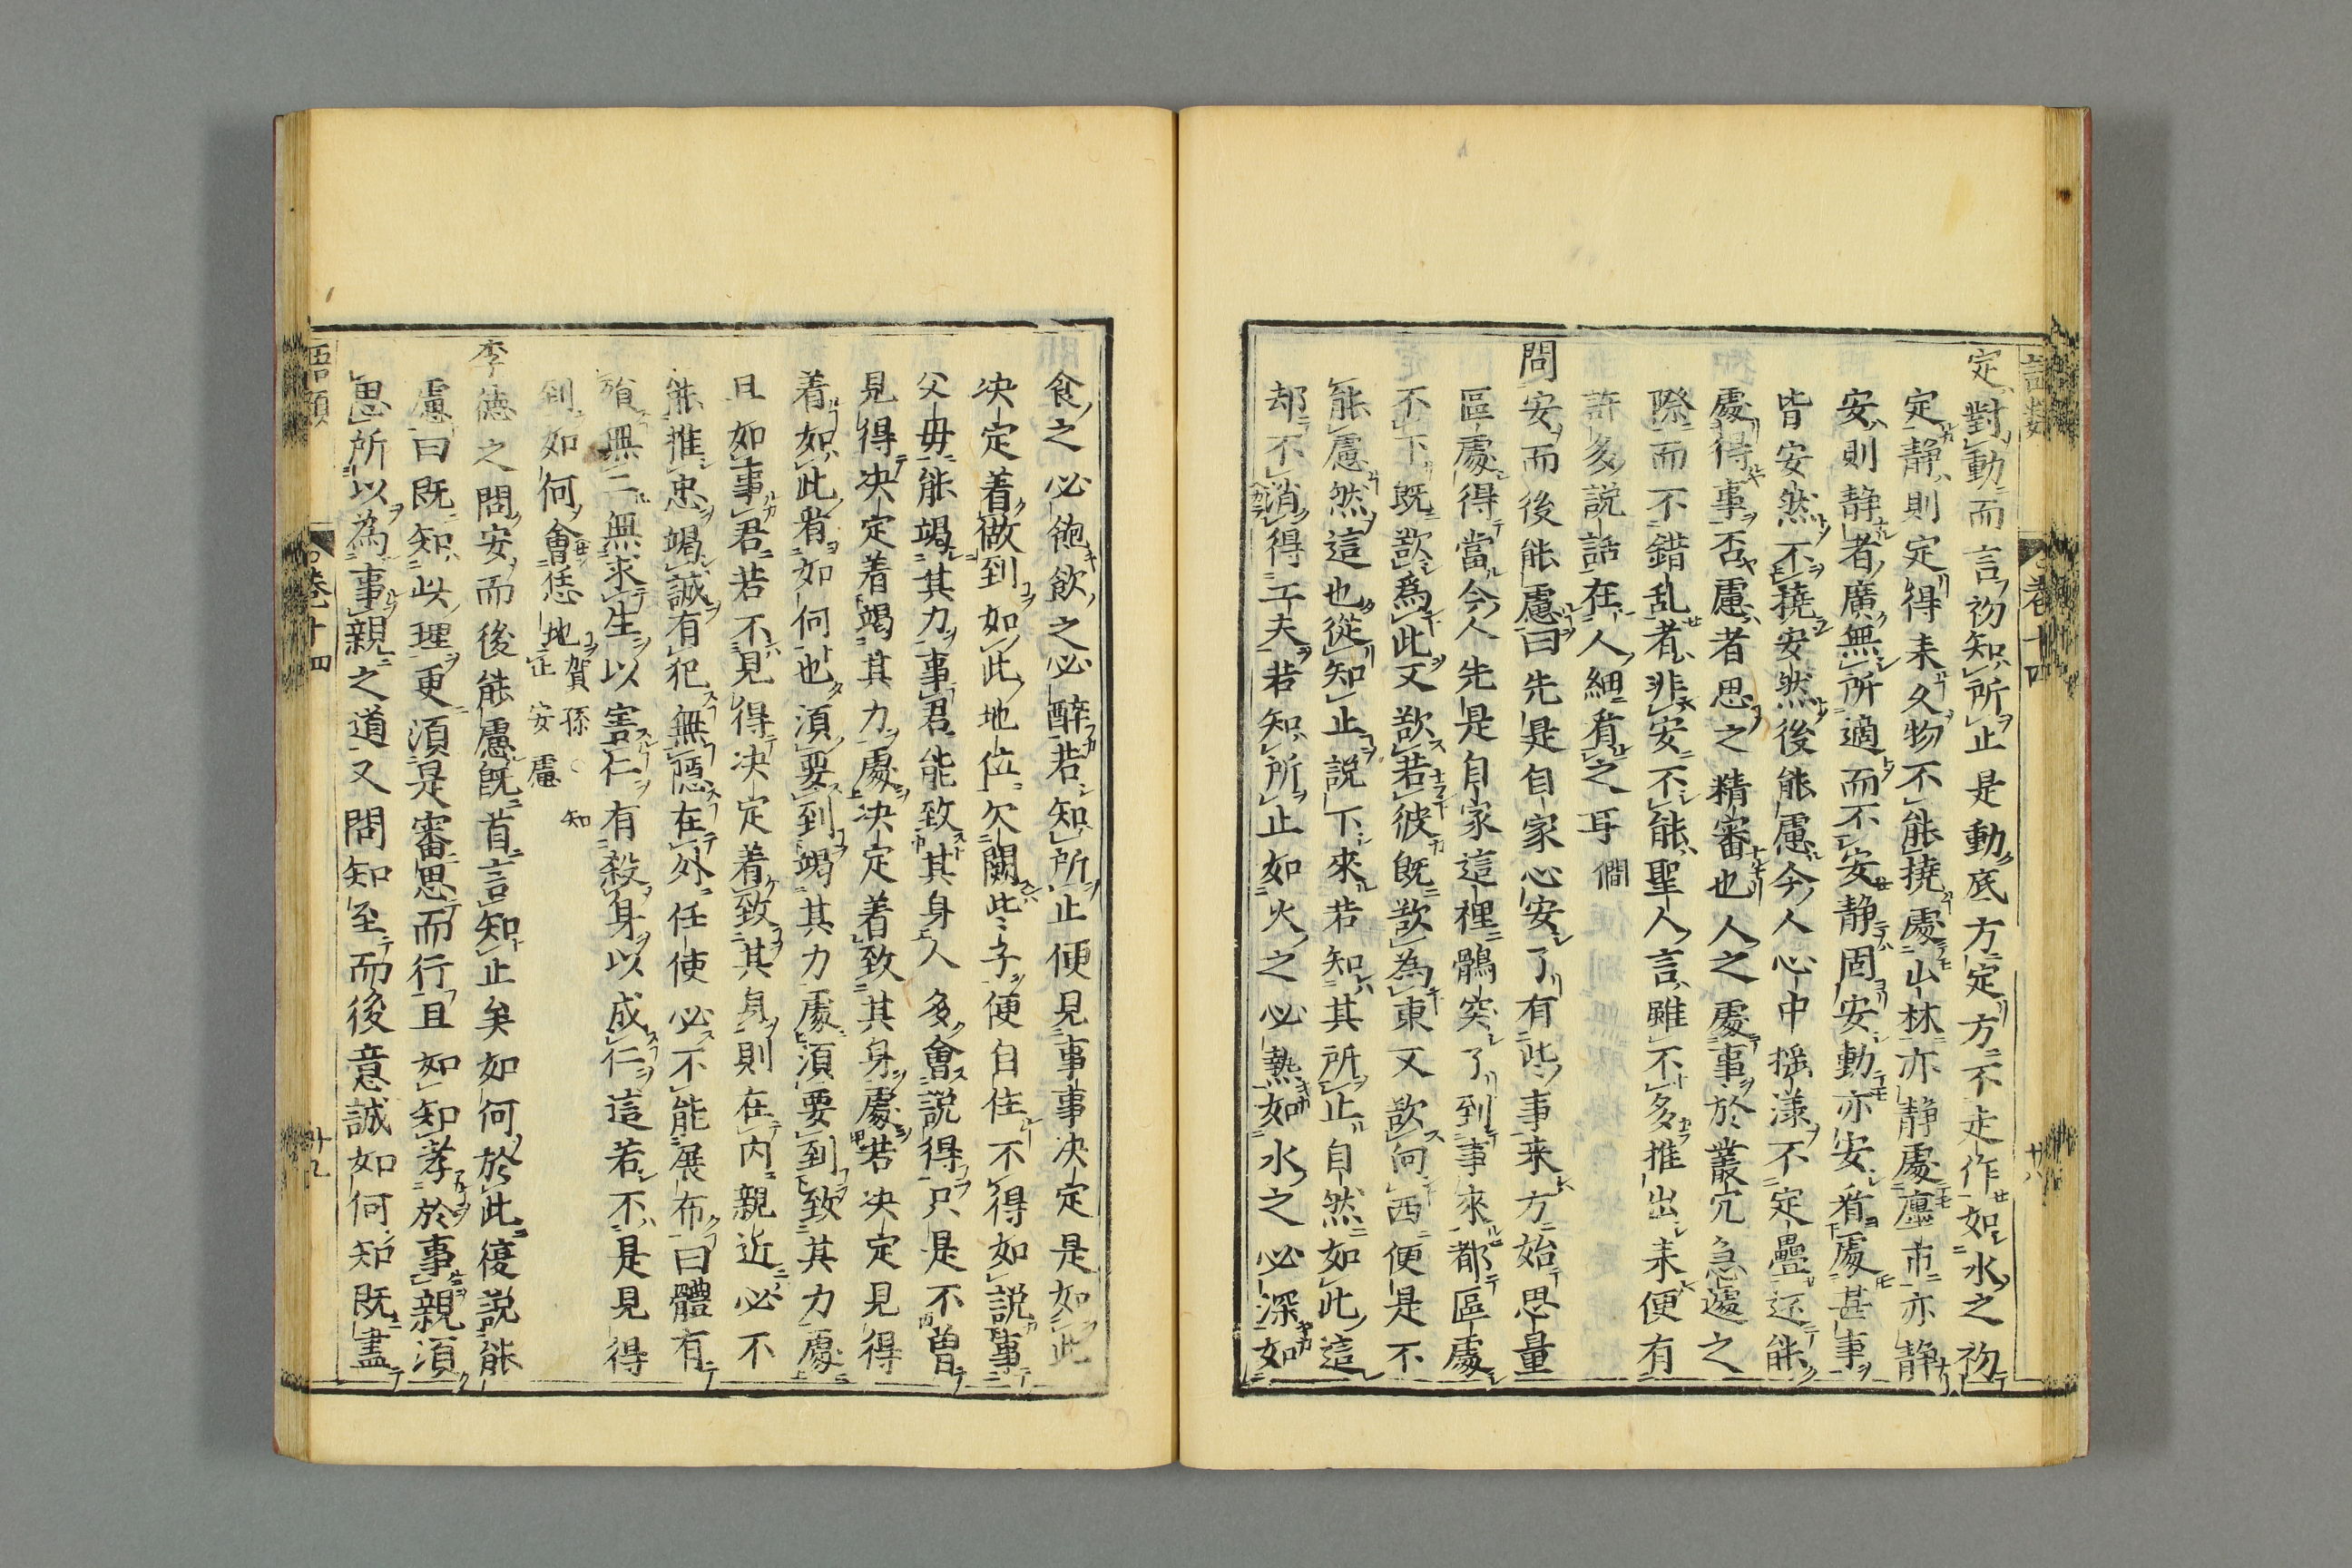 語類
卷十四
廿八
定對動而言初知所止是動底方定方不走作如水之初
定静則定得来久物不能撓處山林亦静處廛市亦静
安則静者廣無所適而不安静固安動亦安看處甚事
皆安然不撓安然後能慮今人心中摇漾不定疊还能
處得事否慮者思之精審也人之處事於叢冗急遽之
際而不錯乱者非安不能聖人言雖不多推出来便有
許多説話在人細看之耳 僩
問安而後能慮曰先是自家心安了有些事来方始思量
區處得當今人先是自家這裡鶻突了到事來都區處
不下既欲爲此又欲若彼既欲為東又欲向西便是不
能慮然這也從知止説下來若知其所止自然如此這
却不消得工夫若知所止如火之必熱如水之必深如
食之必飽飲之必醉若知所止便見事事决定是如此
决定着做到如此地位欠闕些子便自住不得如説事
父母能竭其力事君能致其身人多會説得只是不曽
見得决定着竭其力處决定着致其身處若决定見得
着如此看如何也須要到竭其力處須要到致其力處
且如事君若不見得决定着致其身則在内親近必不
能推忠竭誠有犯無隠在外任使必不能展布曰體有
殞無二無求生以害仁有殺身以成仁這若不是見得
到如何會恁地 賀孫○知止 安慮
李徳之問安而後能慮既首言知止矣如何於此復説能
慮曰既知此理更須是審思而行且如知孝於事親須
思所以為事親之道又問知至而後意誠如何知既盡
語類
卷十四
廿九